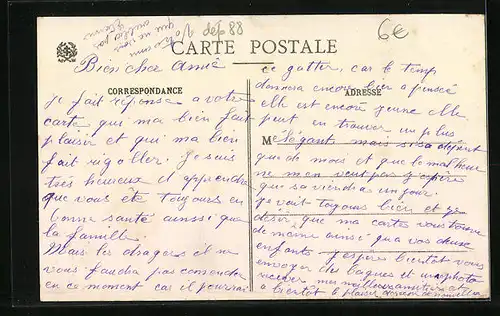 dep 88
6€
CARTE POSTALE
Bien cher Amie
CORRESPONDANCE
je fait réponse a votre
carte qui ma bien fait
plaisir et qui ma bien
fait rigoller. Je suis
très heureux d apprendre
que vous ête toujours en
bonne santé aussi que
la famille.
Mais les dragers il ne
vous faudra pas comander
en ce moment car il pourrai
ce gatter, car le temp
donnera encore bien a pensée
ADRESSE
elle est encore jeune elle
peut en trouver un plus
M élégants mais
que de mois et que le malheur
ne m en veut pas j espère
que sa viendras un jour.
je vait toujous bien et je
désir que ma cartes vous trouve
de meme ainsi qua vos deux
enfants j espères bientôt vous
envoyer des bagues et une photo
recever mes meilleurs amitiés et
a bientôt le plaisir de nouvelles